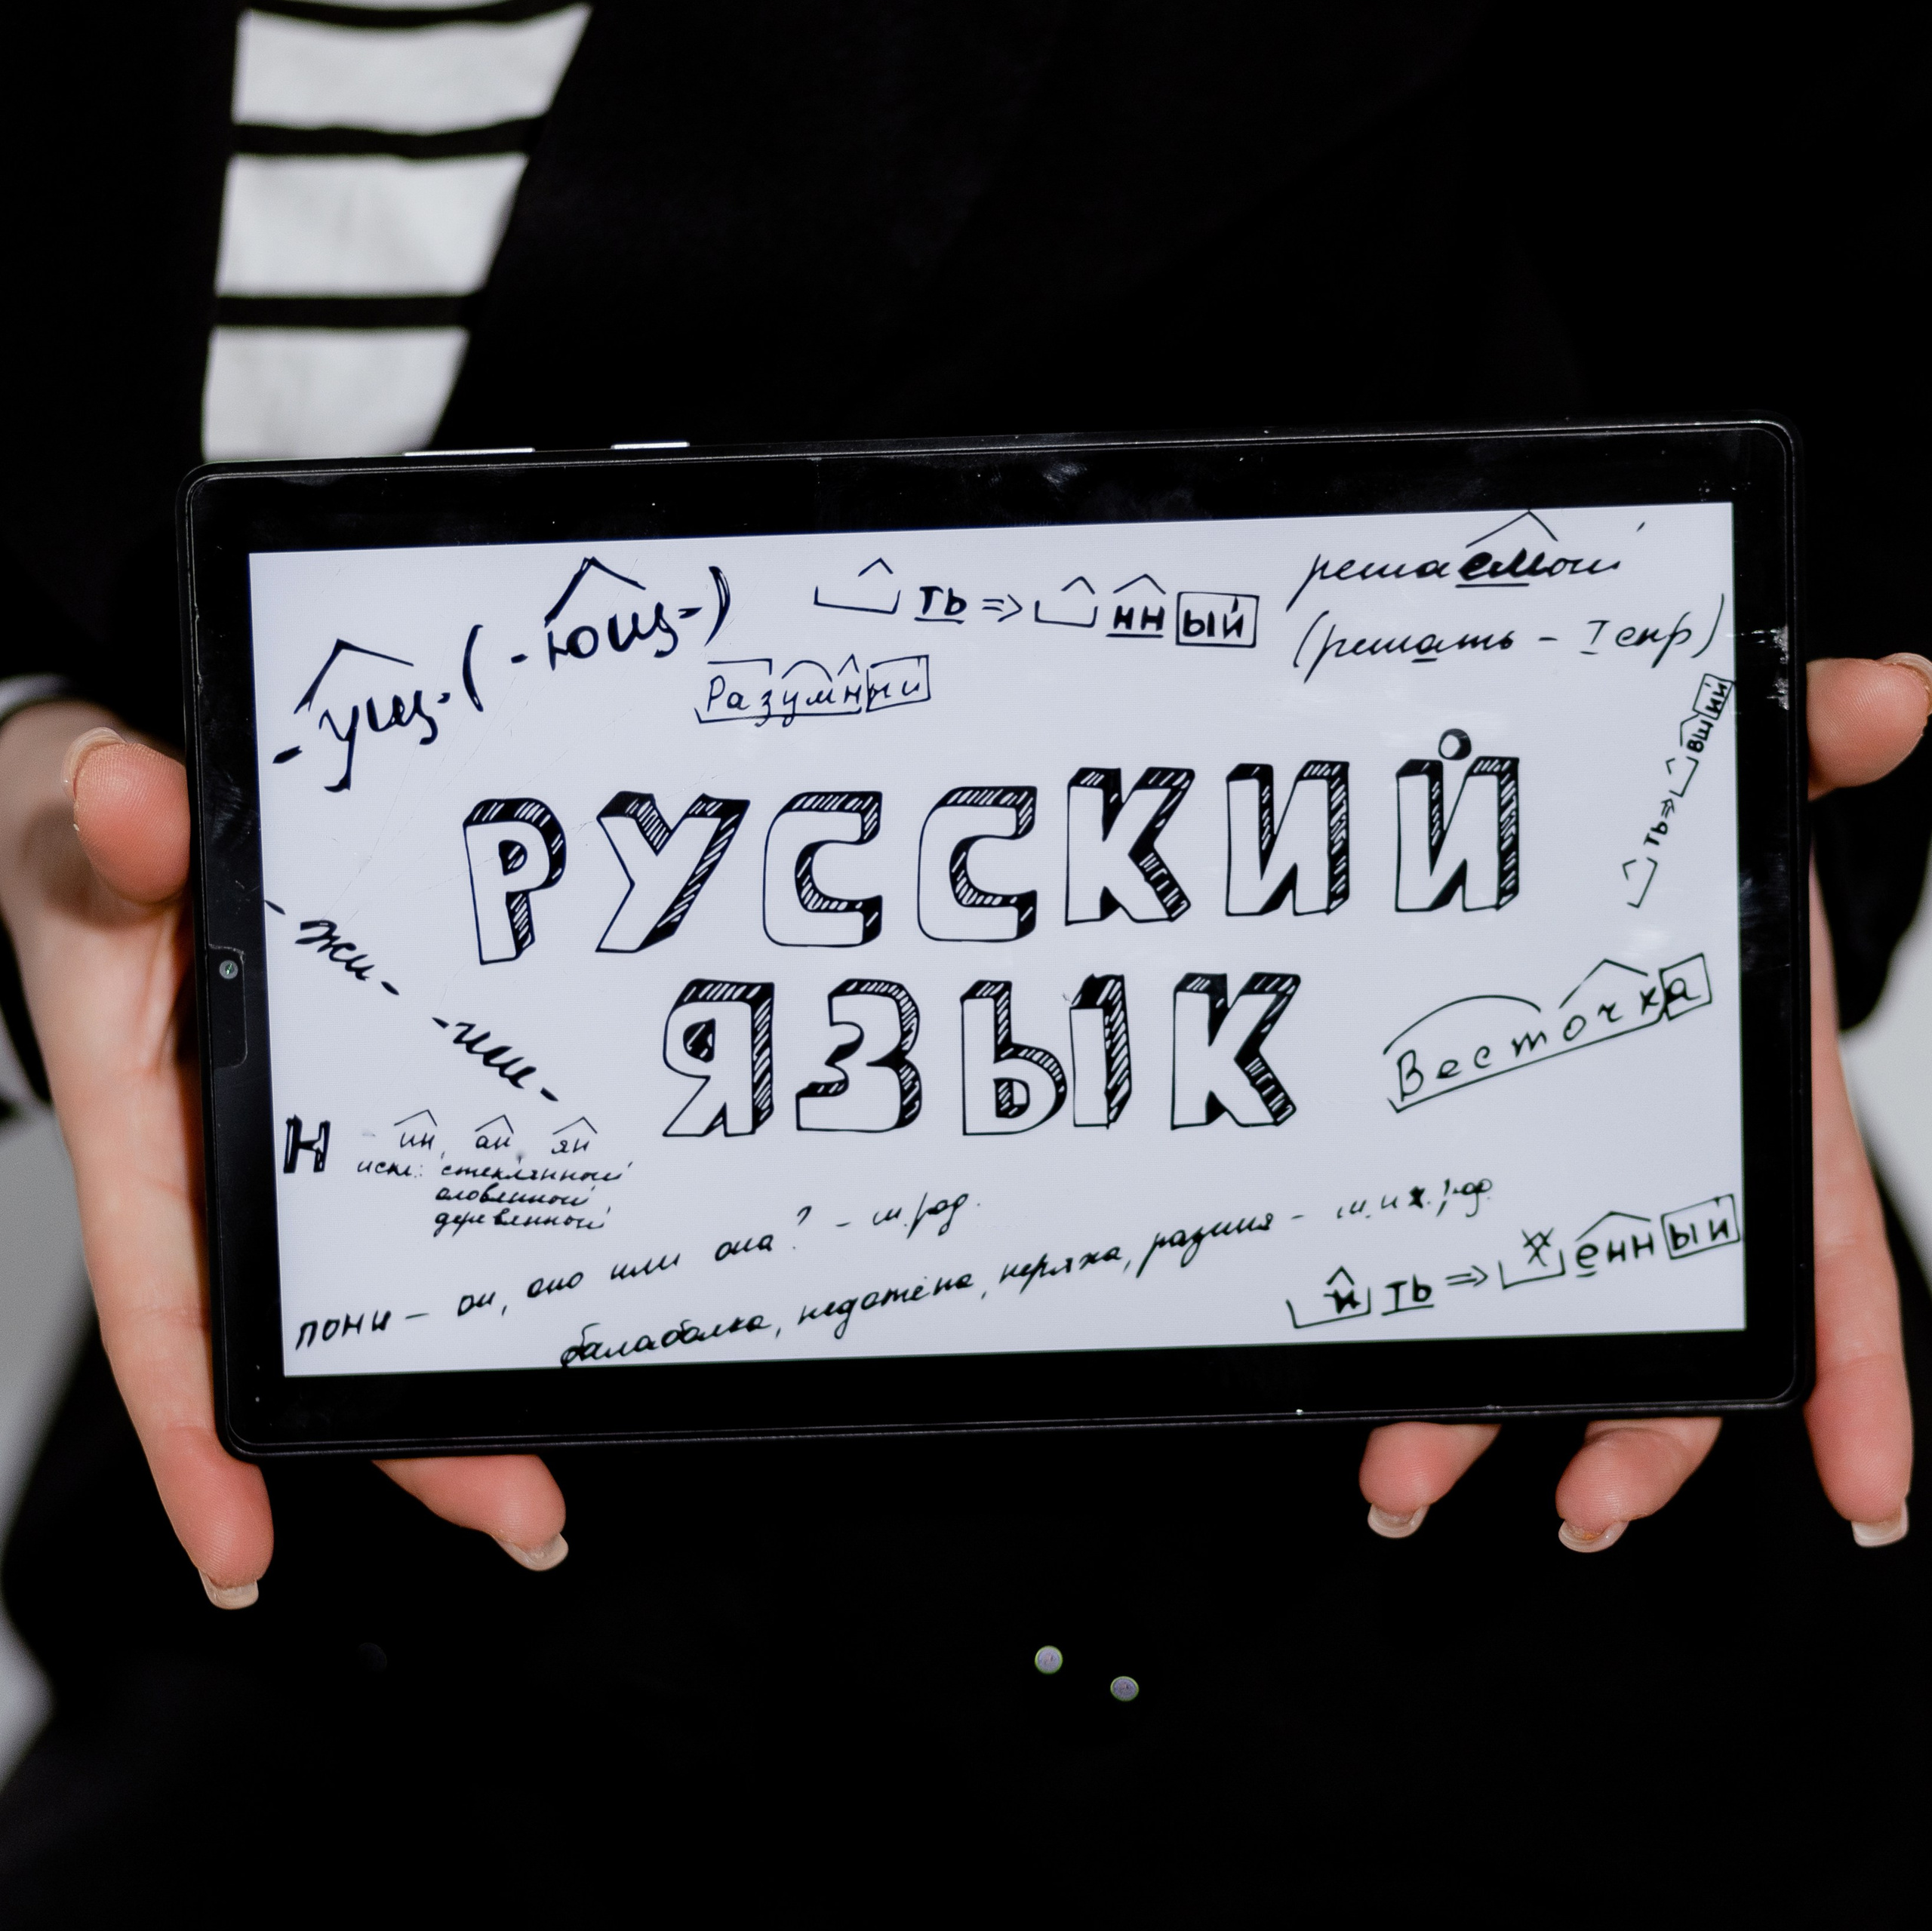 -ущ- (-ющ-)
ть => нн ый
решаемый
(решать - I спр)
Разумный
ть => вш ий
РУССКИЙ
ЯЗЫК
-жи-
-ши-
Весточка
Н - ин, ан, ян
искл: стеклянный
оловянный
деревянный
пони - он, оно или она? - м. род.
балаболка, недотёпа, неряха, разиня - м. и ж. род.
и ть => енн ый